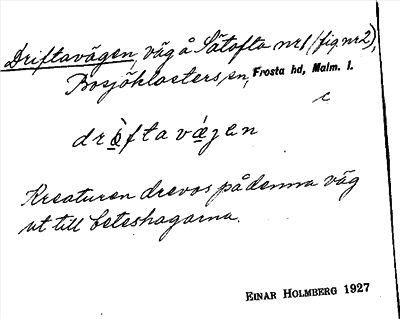 Driftavägen, väg å Sätofta nr 1 (fig nr 2),
Bosjöklosters sn, Frosta hd, Malm. l.
c
drı̀ftavǽgen
Kreaturen drevos på denna väg
ut till beteshagarna.
EINAR HOLMBERG 1927